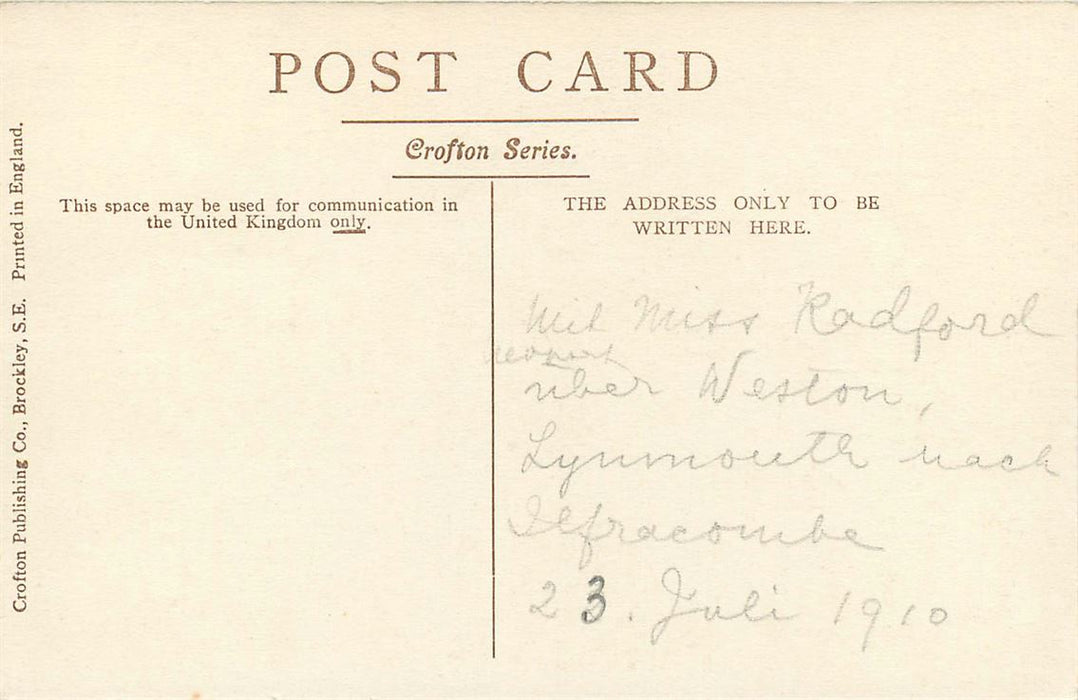 POST CARD
Crofton Series.
This space may be used for communication in
the United Kingdom only.
THE ADDRESS ONLY TO BE
WRITTEN HERE.
Mit Miss Radford
über Weston,
Lynmouth nach
Ilfracombe
23. Juli 1910
Crofton Publishing Co., Brockley, S.E. Printed in England.